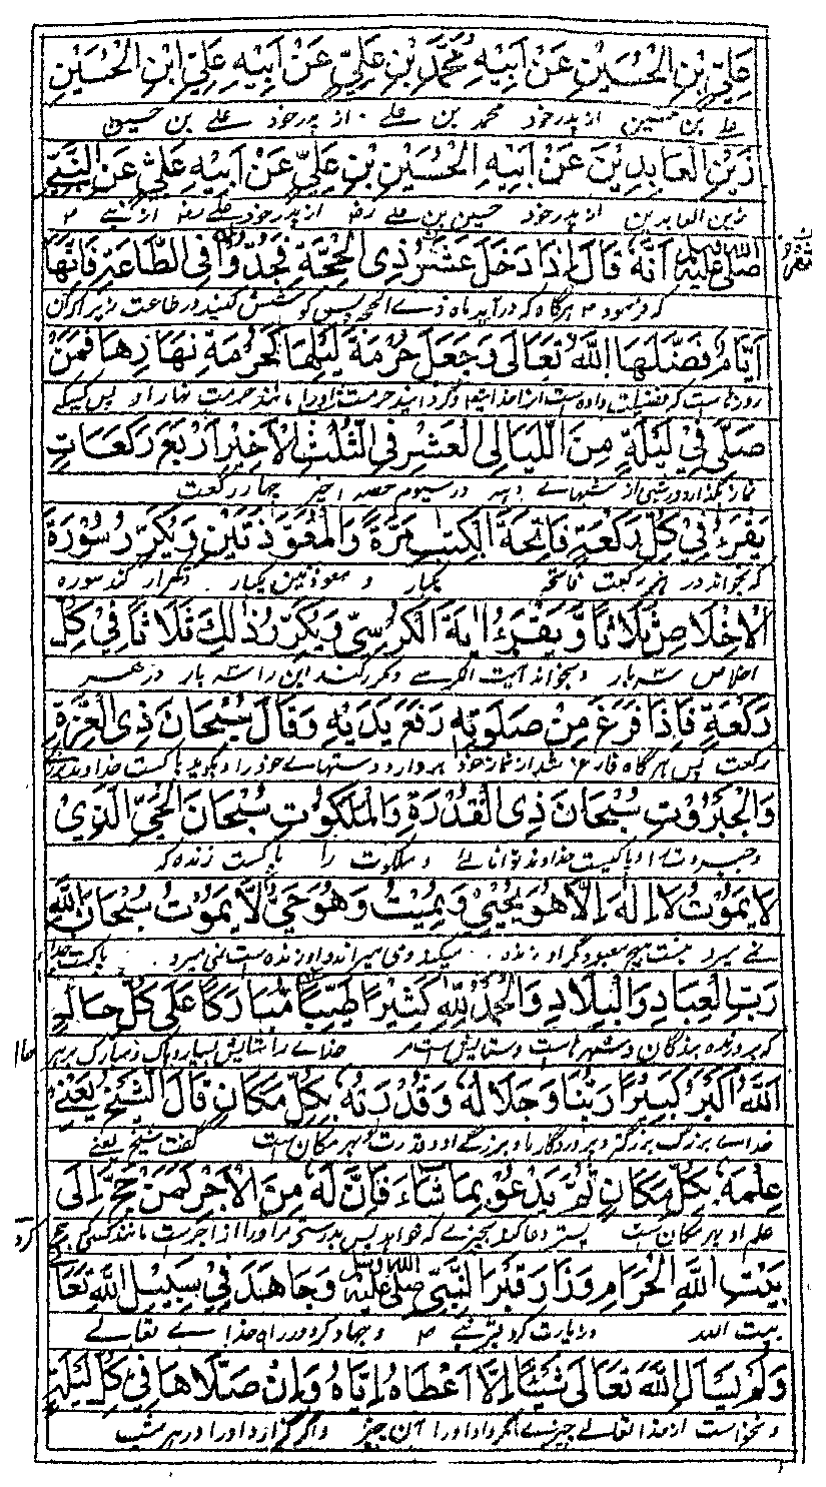 عَلِيِّ بْنِ الْحُسَيْنِ عَنْ اَبِيْهِ مُحَمَّدِ بْنِ عَلِيٍّ عَنْ اَبِيْهِ عَلِيِّ ابْنِ الْحُسَيْنِ
علے بن حسین از پدر خود محمد بن علے از پدر خود علے بن حسین
زَيْنِ الْعَابِدِيْنَ عَنْ اَبِيْهِ الْحُسَيْنِ بْنِ عَلِيٍّ عَنْ اَبِيْهِ عَلِيٍّ عَنِ النَّبِيِّ
زین العابدین از پدر خود حسین بن علے رضہ از پدر خود علے رضہ از نبے ص
صَلَّى اللهُ عَلَيْهِ وَسَلَّمَ اَنَّهٗ قَالَ اِذَا دَخَلَ عَشْرُ ذِى الْحِجَّةِ فَجُدُّوْا فِى الطَّاعَةِ فَاِنَّهَا
که فرمود ص هرگاه که در آید ماه ذے الحجه پس کوشش کنید در طاعت زیراکه آن
اَيَّامٌ فَضَّلَهَا اللهُ تَعَالٰى وَجَعَلَ حُرْمَةَ لَيْلِهَا كَحُرْمَةِ نَهَارِهَا فَمَنْ
روزهاست که فضیلت داده است آنرا خدایتعالے و گردانید حرمت شب او را مانند حرمت نهار او پس کسیکه
صَلّٰى فِيْ لَيْلَةٍ مِنَ اللَّيَالِى الْعَشْرِ فِى الثُّلُثِ الْاَخِيْرِ اَرْبَعَ رَكَعَاتٍ
نماز بگذارد در شبی از شبهاے در سیوم حصه اخیر چهار رکعت
يَقْرَءُ فِيْ كُلِّ رَكْعَةٍ فَاتِحَةَ الْكِتٰبِ مَرَّةً وَالْمُعَوَّذَتَيْنِ وَيُكَرِّرُ سُوْرَةَ
که بخواند در هر رکعت فاتحه یکبار و معوذتین یکبار و تکرار کند سوره
الْاِخْلَاصِ ثَلَاثًا وَّيَقْرَءُ اٰيَةَ الْكُرْسِيِّ وَيُكَرِّرُ ذٰلِكَ ثَلَاثًا فِيْ كُلِّ
اخلاص سه بار و بخواند آیت الکرسے و مکرر کند این را سه بار در هر
رَكْعَةٍ فَاِذَا فَرَغَ مِنْ صَلٰوتِهٖ رَفَعَ يَدَيْهِ وَقَالَ سُبْحَانَ ذِى الْعِزَّةِ
رکعت پس هرگاه فارغ شد از نماز خود بردارد دستهاے خود را و بگوید پاکست خداوند
وَالْجَبَرُوْتِ سُبْحَانَ ذِى الْقُدْرَةِ وَالْمَلَكُوْتِ سُبْحَانَ الْحَيِّ الَّذِيْ
و جبروت را و پاکیست خداوند توانائے و ملکوت را پاکست زنده که
لَا يَمُوْتُ لَا اِلٰهَ اِلَّا هُوَ يُحْيِيْ وَيُمِيْتُ وَهُوَ حَيٌّ لَّا يَمُوْتُ سُبْحَانَ اللهِ
نے میرد نیست هیچ معبود مگر او زنده میکند و می میراند و او زنده است نمی میرد پاکست خدا
رَبِّ الْعِبَادِ وَالْبِلَادِ وَالْحَمْدُ لِلّٰهِ كَثِيْرًا طَيِّبًا مُّبَارَكًا عَلٰى كُلِّ حَالٍ
که پرورنده بندگان و شهرهاست و ستایش است مر خداے را ستایش بسیار و پاک و مبارک بر هر حال
اَللهُ اَكْبَرُ كَبِيْرًا رَبُّنَا وَجَلَالُهٗ وَقُدْرَتُهٗ بِكُلِّ مَكَانٍ قَالَ الشَّيْخُ يَعْنِيْ
خداے بزرگ بزرگتر و پروردگار ما و بزرگے او و قدرت او بهر مکان است گفت شیخ یعنے
عِلْمُهٗ بِكُلِّ مَكَانٍ ثُمَّ يَدْعُوْ بِمَا شَاءَ فَاِنَّ لَهٗ مِنَ الْاَجْرِ كَمَنْ حَجَّ اِلٰى
علم او بهر مکان است پستر دعا کند بچیزے که خواهد پس بدرستی مر او را از اجرست مانند کسیکه حج کرد
بَيْتِ اللهِ الْحَرَامِ وَزَارَ قَبْرَ النَّبِيِّ صَلَّى اللهُ عَلَيْهِ وَسَلَّمَ وَجَاهَدَ فِيْ سَبِيْلِ اللهِ تَعَالٰى
بیت الله و زیارت کرد قبر نبے ص و جهاد کرد در راه خداے تعالے
وَلَمْ يَسْاَلِ اللهَ تَعَالٰى شَيْئًا اِلَّا اَعْطَاهُ اِيَّاهُ وَاِنْ صَلَّاهَا فِيْ كُلِّ لَيْلَةٍ
و نخواست از خدا تعالے چیزے مگر داد او را آن چیز و اگر گزارد او را در هر شب